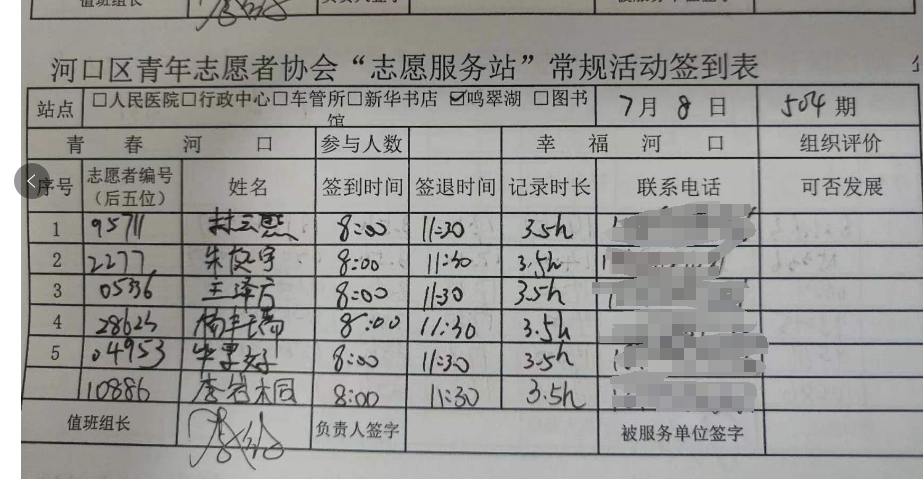 值班组长 负责人签字 被服务单位签字
河口区青年志愿者协会“志愿服务站”常规活动签到表
站点 □人民医院□行政中心□车管所□新华书店 ☑鸣翠湖 □图书馆 7月8日 504期
青春河口 参与人数 幸福河口 组织评价
序号 志愿者编号（后五位） 姓名 签到时间 签退时间 记录时长 联系电话 可否发展
1 95711 8:00 11:30 3.5h
2 2277 朱文宇 8:00 11:30 3.5h
3 05336 王泽方 8:00 11:30 3.5h
4 28623 8:00 11:30 3.5h
5 04953 8:00 11:30 3.5h
10886 李岩桐 8:00 11:30 3.5h
值班组长 负责人签字 被服务单位签字